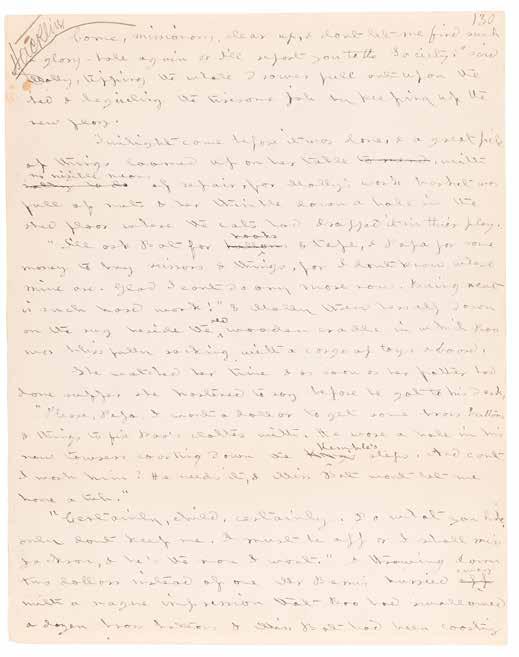 130
Hicklin
"Come, missionary, clear up, & dont let me find such
a glory-hole again or I'll report you to the Society," said
Molly, tipping the whole drawer full out upon the
bed & beguiling the tiresome job by keeping up the
new play.
Twilight came before it was done, & a great pile
of things loomed up on her table with
no visible means
of repair, for Molly's work basket was
full of nuts & her thimble down a hole in the
shed floor where the cats had dropped it in their play.
"I'll ask Bat for hooks & tape, & Papa for some
money to buy scissors & things, for I dont know where
mine are. Glad I cant do any more now. Being neat
is such hard work!" & Molly threw herself down
on the rug beside the old wooden cradle in which Boo
was blissfully rocking with a cargo of toys aboard.
She watched her time & as soon as her father had
done supper she hastened to say before he got to his desk,
"Please, Papa, I want a dollar to get some brass buttons
& things to fix Boo's clothes with. He wore a hole in his
new trousers coasting down the Kemble's steps. And cant
I wash him? He needs it, & Miss Bat wont let me
have a tub."
"Certainly, child, certainly. Do what you like
only dont keep me. I must be off or I shall miss
Jackson, & he's the man I want." & throwing down
two dollars instead of one Mr Bemis hurried away
with a vague impression that Boo had swallowed
a dozen brass buttons & Miss Bat had been coasting